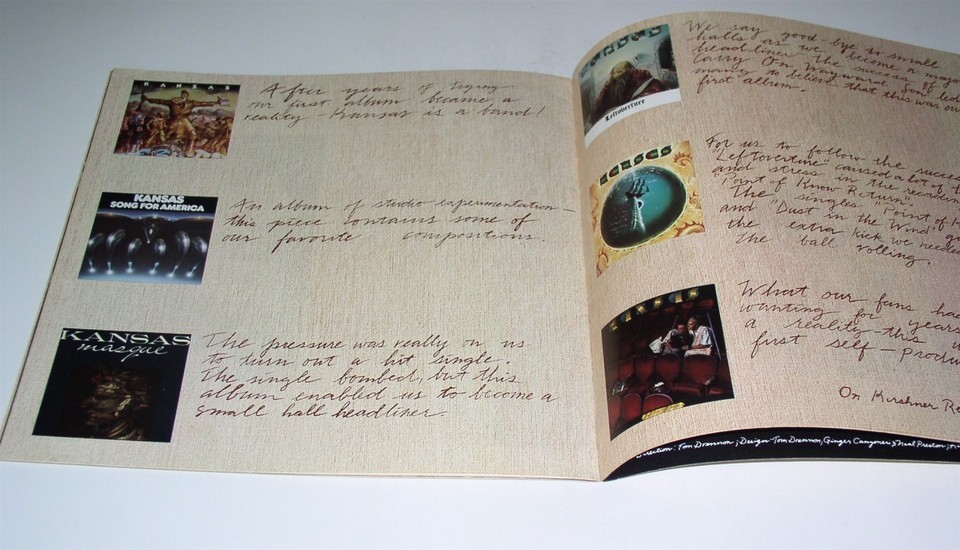 KANSAS
After years of trying
our first album became a
reality - Kansas is a band!
KANSAS
SONG FOR AMERICA
An album of studio experimentation -
this piece contains some of
our favorite compositions.
KANSAS
masque
The pressure was really on us
to turn out a hit single.
The single bombed, but this
album enabled us to become a
small hall headliner.
KANSAS
Leftoverture
We say good-bye to small
halls as we become a major
headliner. The success of
"Carry On Wayward Son" led
many to believe that this was our
first album.
KANSAS
For us to follow the success
"Leftoverture" caused a lot of
and stress in the
"Point of Know Return".
The singles, "Point of
and "Dust in the Wind"
the extra kick we needed
the ball rolling.
KANSAS
What our fans
wanting for years
a reality - this
first self-
On Kirshner
Tom Drennon; Design: Tom Drennon, Ginger Canzoneri & Neal Preston;